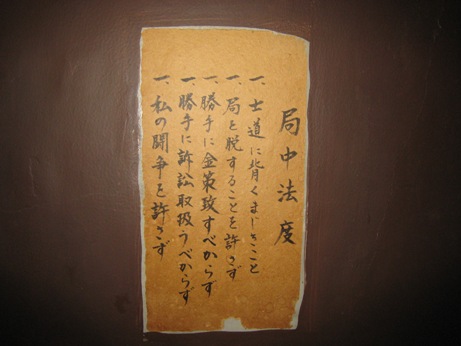 局中法度
一、士道に背くまじきこと
一、局を脱することを許さず
一、勝手に金策致すべからず
一、勝手に訴訟取扱うべからず
一、私の闘争を許さず